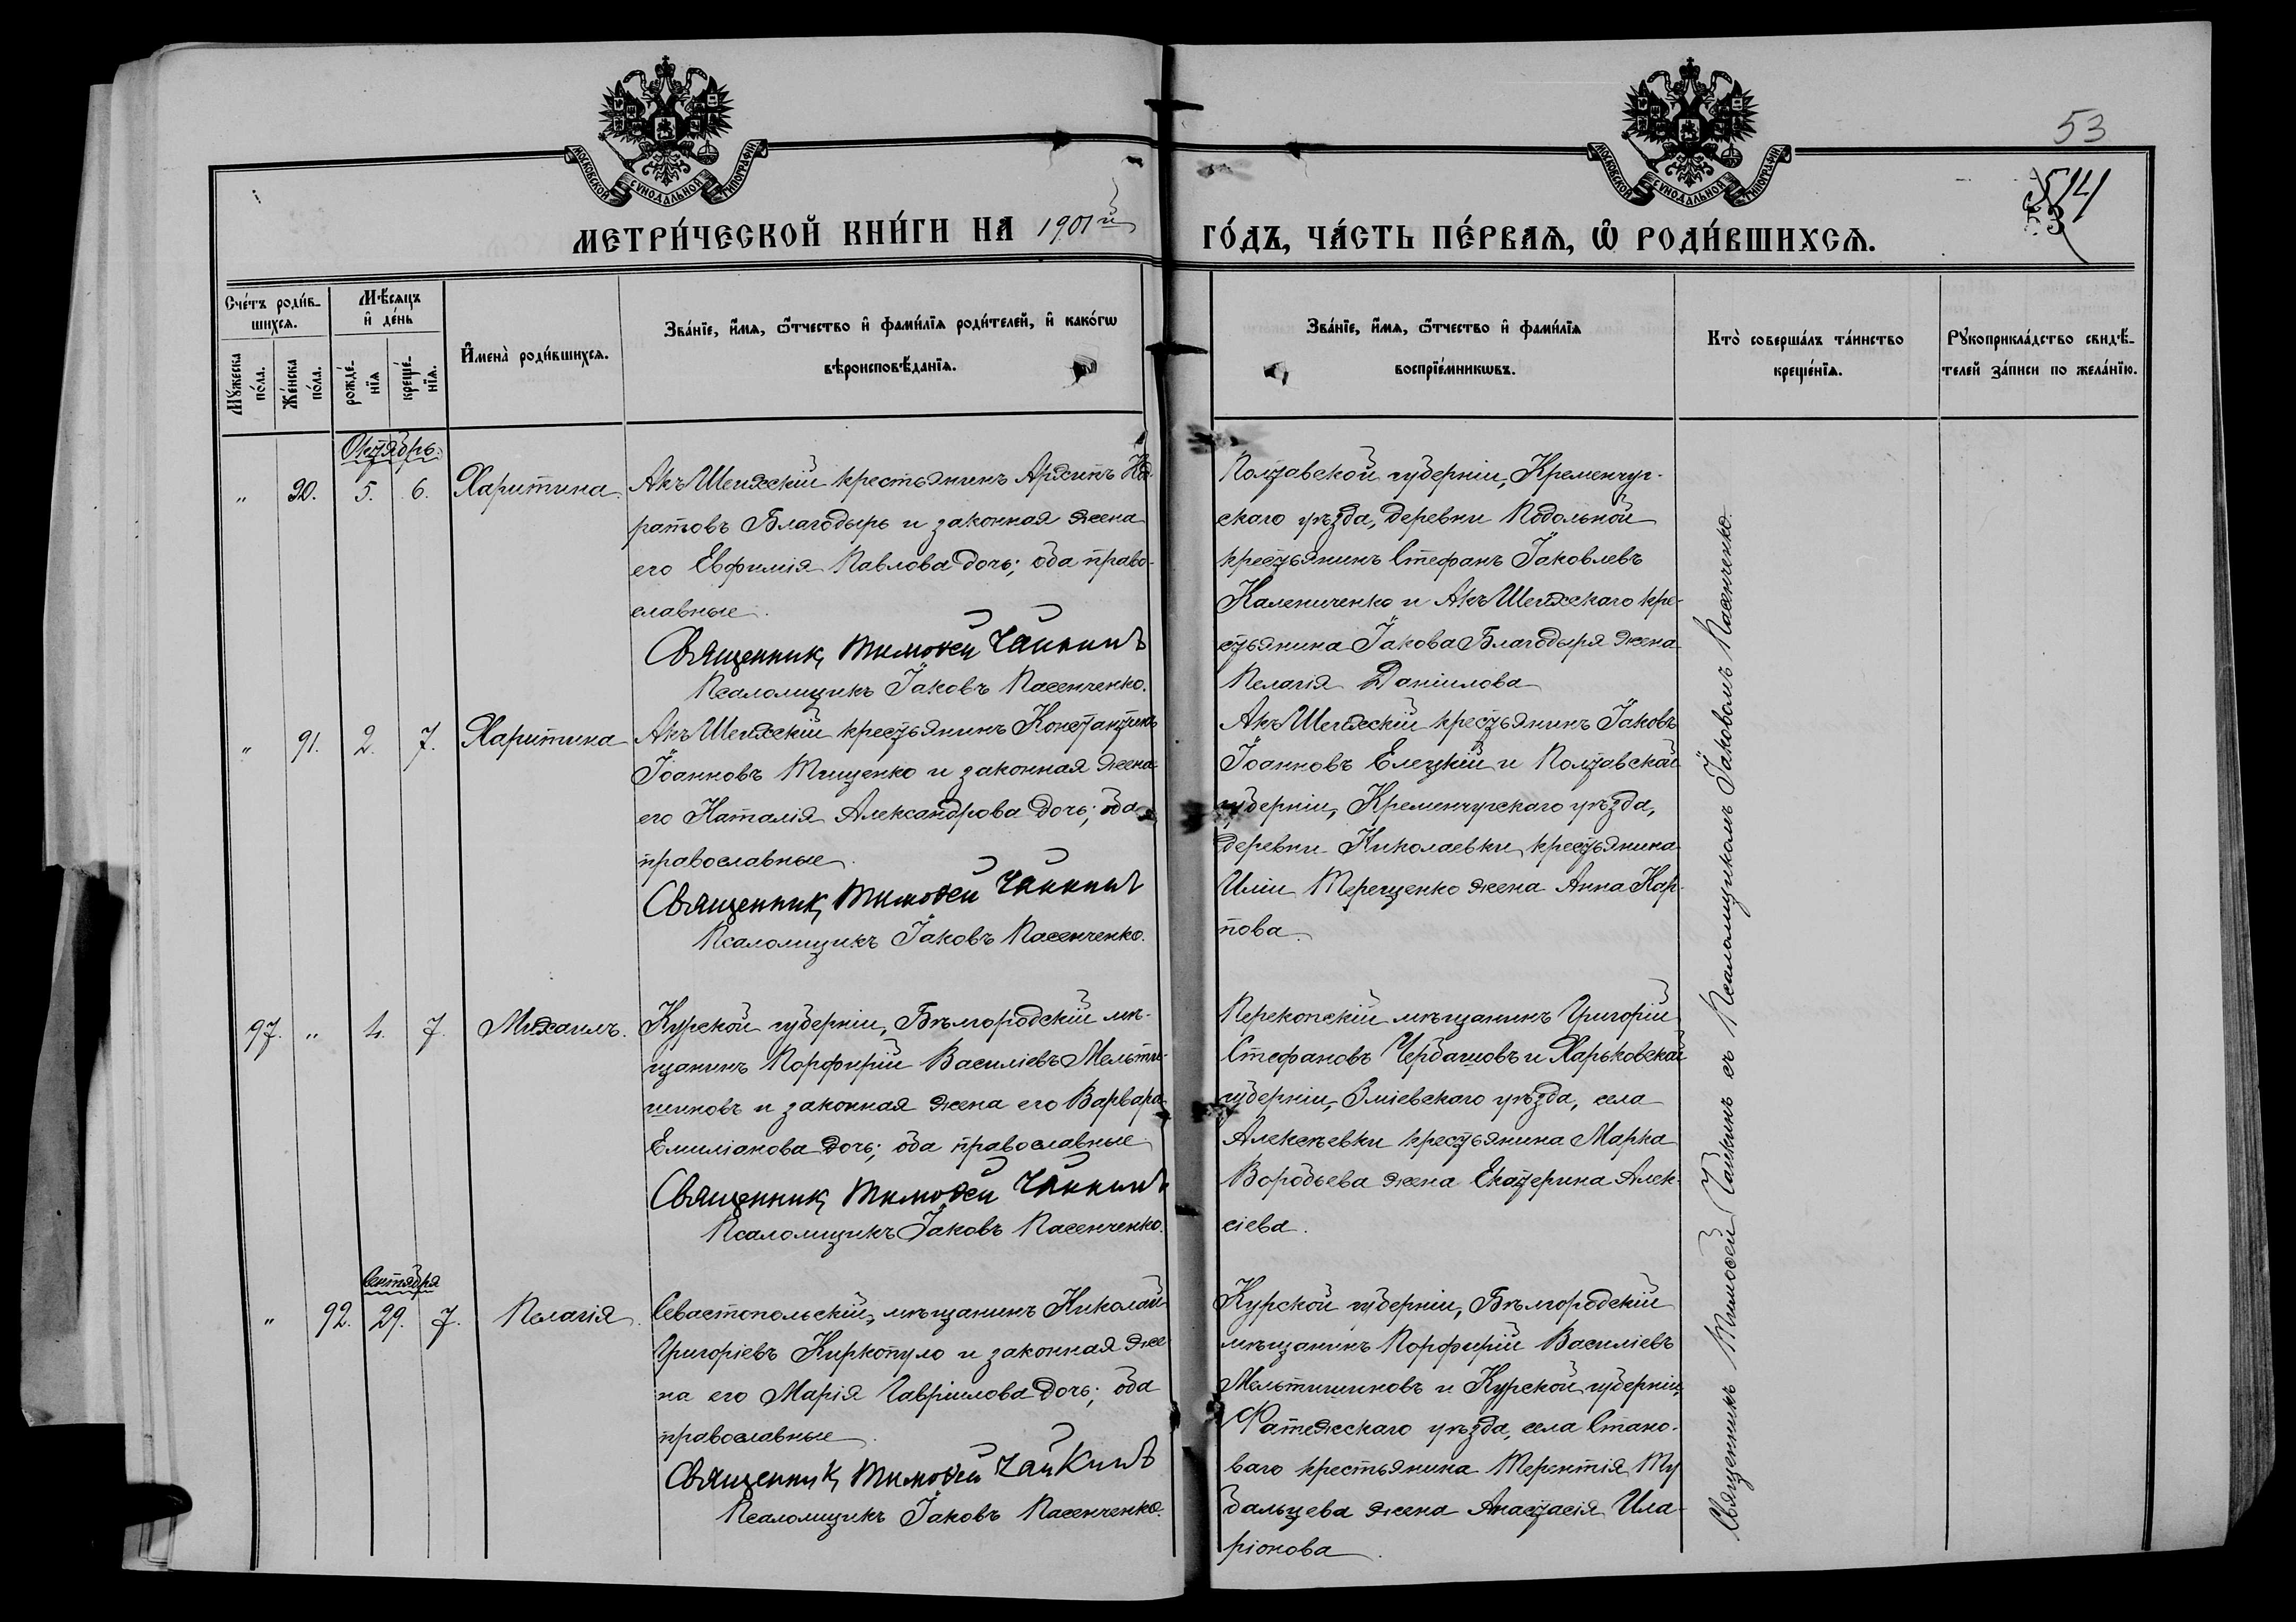 МОСКОВСКОЙ СѴНОДАЛЬНОЙ ТИПОГРАФІИ
МОСКОВСКОЙ СѴНОДАЛЬНОЙ ТИПОГРАФІИ
53
514
53
МЕТРИ́ЧЕСКОЙ КНИ́ГИ НА 1901й ГО́ДЪ, ЧА́СТЬ ПЕ́РВАѦ, Ѡ҆ РОДИ́ВШИХСѦ.
Сче́тъ роди́в-
шихсѧ.
Мѣ́сѧцъ
и҆ де́нь
Мꙋ́жеска
по́ла.
Же́нска
по́ла.
рожде́-
нїѧ
креще́-
нїѧ.
И҆мена̀ роди́вшихсѧ.
Зва́нїе, и҆́мѧ, ѻ҆́тчество и҆ фамн́лїѧ роди́телей, и҆ како́гѡ
вѣроисповѣ́данїѧ.
Зва́нїе, и҆́мѧ, ѻ҆́тчество и҆ фами́лїѧ
воспрїе́мникѡвъ.
Кто̀ соверша́лъ та́инство
креще́нїѧ.
Рꙋкоприкла́дство свидѣ́-
телей за́писи по жела́нїю.
Октябрь.
„ 90. 5. 6. Харитина.
Акъ Шеихскій крестьянинъ Архипъ
ратовъ Благодырь и законная жена
его Евфимія Павлова дочь; оба право-
славные.
Священникъ Тимоѳей Чайкинъ
Псаломщикъ Іаковъ Пасенченко.
Полтавской губерніи, Кременчуг-
скаго уѣзда, деревни Подольной
крестьянинъ Стефанъ Іаковлевъ
Калениченко и Акъ Шеихскаго кре-
стьянина Іакова Благодыря жена
Пелагія Даніилова
„ 91. 2. 7. Харитина
Акъ Шеихскій крестьянинъ Константинъ
Іоанновъ Тищенко и законная жена
его Наталія Александрова дочь; оба
православные.
Священникъ Тимоѳей Чайкинъ
Псаломщикъ Іаковъ Пасенченко.
Акъ Шеихскій крестьянинъ Іаковъ
Іоанновъ Елецкій и Полтавской
губерніи, Кременчугскаго уѣзда,
деревни Николаевки крестьянина
Иліи Терещенко жена Анна Кар-
пова.
97. „ 4. 7. Михаилъ.
Курской губерніи, Бѣлгородскій мѣ-
щанинъ Порфирій Василіевъ Мельти-
шиновъ и законная жена его Варвара
Емиліанова дочь; оба православные.
Священникъ Тимоѳей Чайкинъ
Псаломщикъ Іаковъ Пасенченко.
Перекопскій мѣщанинъ Григорій
Стефановъ Чердашовъ и Харьковской
губерніи, Зміевскаго уѣзда, села
Алексѣевки крестьянина Марка
Воробьева жена Екатерина Алек-
сіева.
Сентября
„ 92. 29. 7. Пелагія.
Севастопольскій мѣщанинъ Николай
Григоріевъ Киркопуло и законная же
на его Марія Гавріилова дочь; оба
православные.
Священникъ Тимоѳей Чайкинъ
Псаломщикъ Іаковъ Пасенченко.
Курской губерніи, Бѣлгородскій
мѣщанинъ Порфирій Василіевъ
Мельтишиновъ и Курской губерніи,
Фатежскаго уѣзда, села Стано-
ваго крестьянина Терентія Ту
бальцева жена Анастасія Ила-
ріонова.
Священникъ Тимоѳей Чайкинъ съ Псаломщикомъ Іаковомъ Пасенченко.